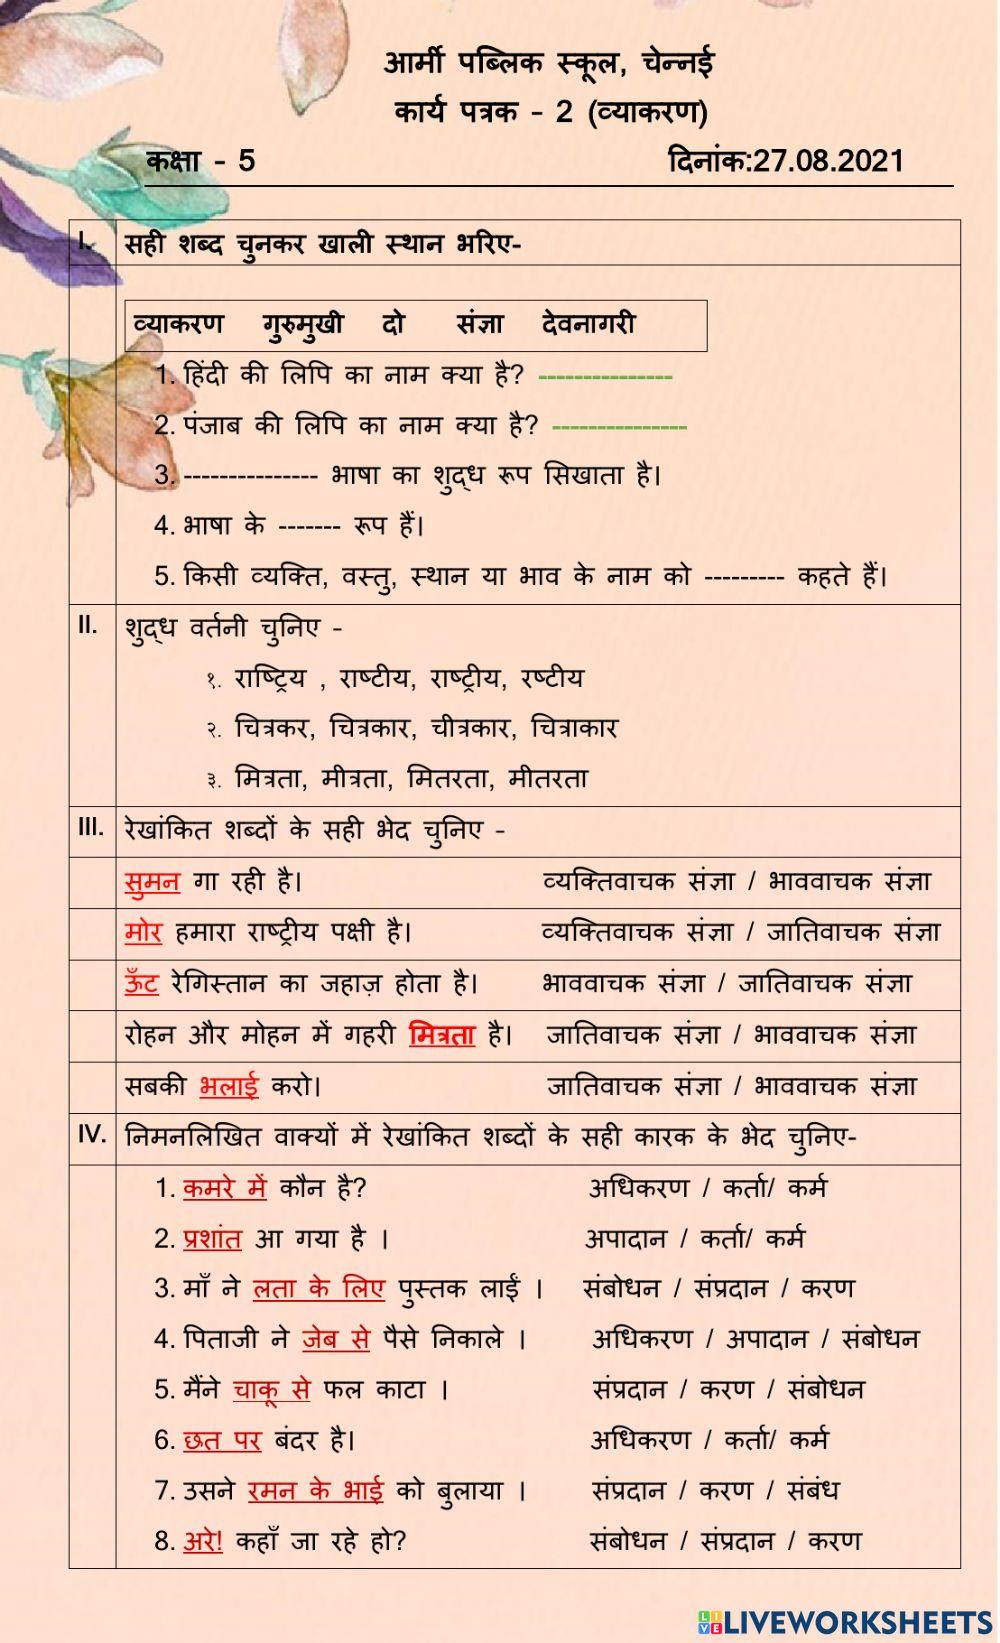 आर्मी पब्लिक स्कूल, चेन्नई
कार्य पत्रक - 2 (व्याकरण)
कक्षा - 5 दिनांक:27.08.2021
I. सही शब्द चुनकर खाली स्थान भरिए-
व्याकरण गुरुमुखी दो संज्ञा देवनागरी
1. हिंदी की लिपि का नाम क्या है? ---------------
2. पंजाब की लिपि का नाम क्या है? ---------------
3. --------------- भाषा का शुद्ध रूप सिखाता है।
4. भाषा के ------- रूप हैं।
5. किसी व्यक्ति, वस्तु, स्थान या भाव के नाम को --------- कहते हैं।
II. शुद्ध वर्तनी चुनिए -
१. राष्ट्रिय , राष्टीय, राष्ट्रीय, रष्टीय
२. चित्रकर, चित्रकार, चीत्रकार, चित्राकार
३. मित्रता, मीत्रता, मितरता, मीतरता
III. रेखांकित शब्दों के सही भेद चुनिए -
सुमन गा रही है। व्यक्तिवाचक संज्ञा / भाववाचक संज्ञा
मोर हमारा राष्ट्रीय पक्षी है। व्यक्तिवाचक संज्ञा / जातिवाचक संज्ञा
ऊँट रेगिस्तान का जहाज़ होता है। भाववाचक संज्ञा / जातिवाचक संज्ञा
रोहन और मोहन में गहरी मित्रता है। जातिवाचक संज्ञा / भाववाचक संज्ञा
सबकी भलाई करो। जातिवाचक संज्ञा / भाववाचक संज्ञा
IV. निमनलिखित वाक्यों में रेखांकित शब्दों के सही कारक के भेद चुनिए-
1. कमरे में कौन है? अधिकरण / कर्ता/ कर्म
2. प्रशांत आ गया है । अपादान / कर्ता/ कर्म
3. माँ ने लता के लिए पुस्तक लाईं । संबोधन / संप्रदान / करण
4. पिताजी ने जेब से पैसे निकाले । अधिकरण / अपादान / संबोधन
5. मैंने चाकू से फल काटा । संप्रदान / करण / संबोधन
6. छत पर बंदर है। अधिकरण / कर्ता/ कर्म
7. उसने रमन के भाई को बुलाया । संप्रदान / करण / संबंध
8. अरे! कहाँ जा रहे हो? संबोधन / संप्रदान / करण
LIVE LIVEWORKSHEETS